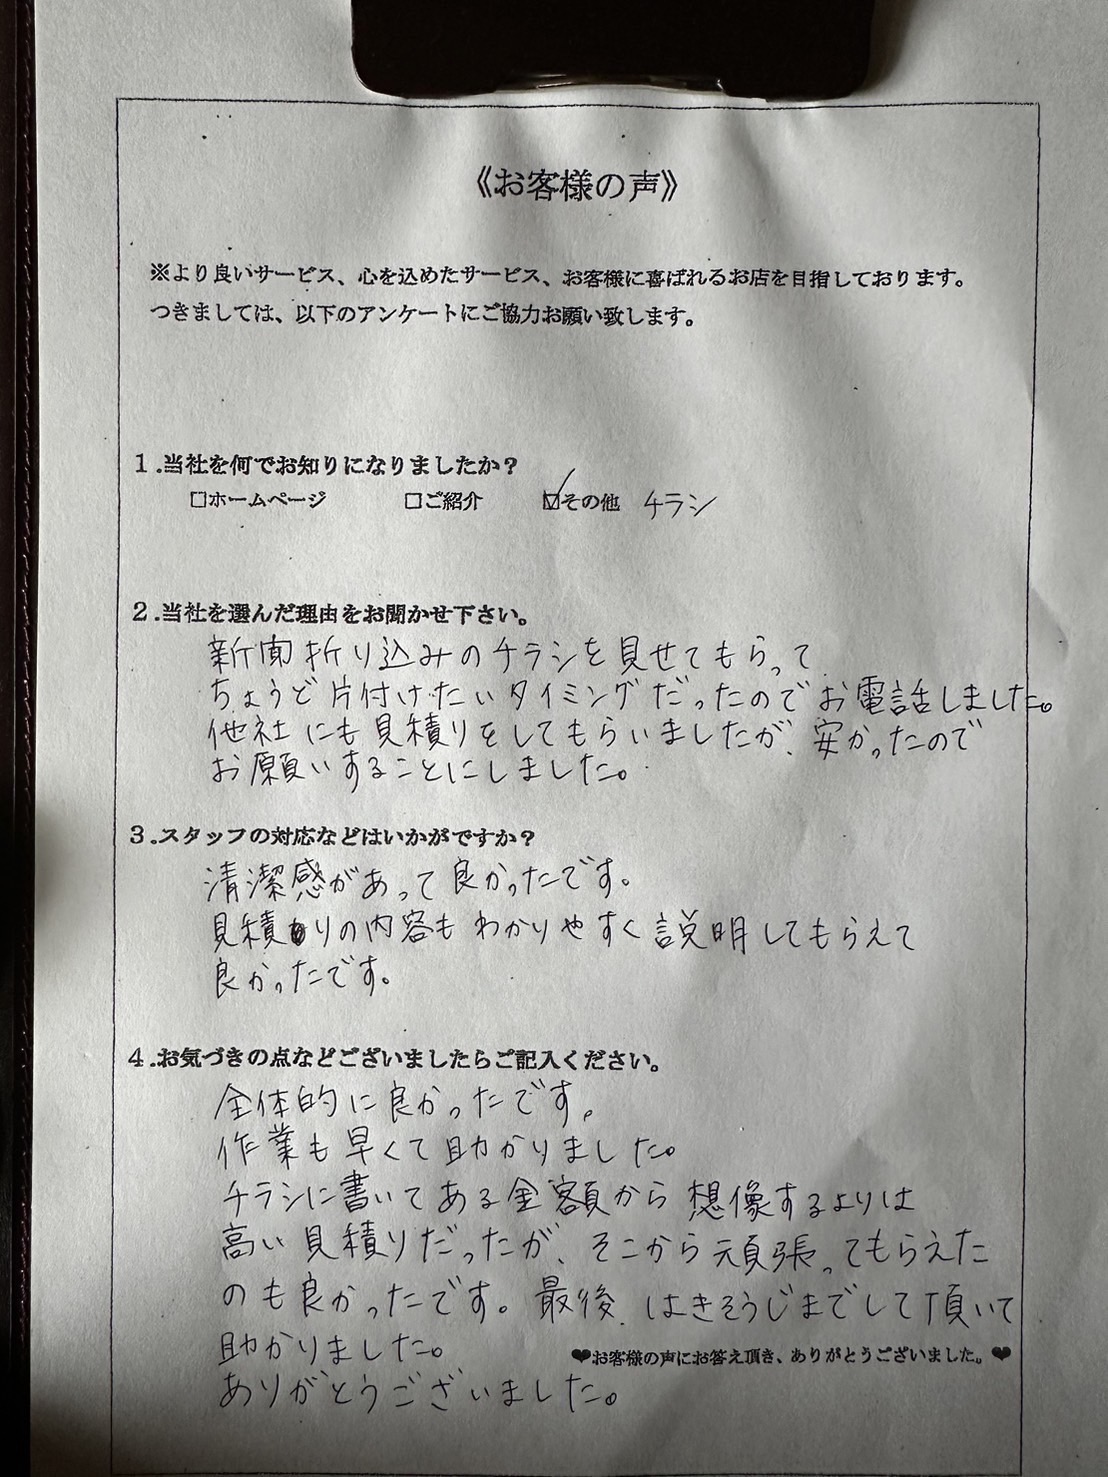 《お客様の声》
※より良いサービス、心を込めたサービス、お客様に喜ばれるお店を目指しております。
つきましては、以下のアンケートにご協力お願い致します。
1.当社を何でお知りになりましたか？
□ホームページ □ご紹介 ☑その他 チラシ
2.当社を選んだ理由をお聞かせ下さい。
新聞折り込みのチラシを見せてもらって
ちょうど片付けたいタイミングだったのでお電話しました。
他社にも見積りをしてもらいましたが、安かったので
お願いすることにしました。
3.スタッフの対応などはいかがですか？
清潔感があって良かったです。
見積りの内容もわかりやすく説明してもらえて
良かったです。
4.お気づきの点などございましたらご記入ください。
全体的に良かったです。
作業も早くて助かりました。
チラシに書いてある金額から想像するよりは
高い見積りだったが、そこから頑張ってもらえた
のも良かったです。最後、はきそうじまでして頂いて
助かりました。
❤お客様の声にお答え頂き、ありがとうございました。❤
ありがとうございました。